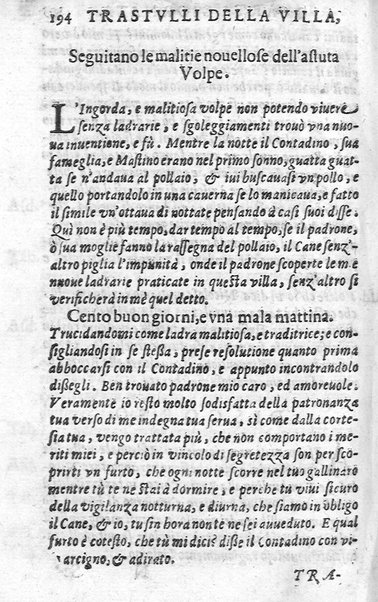 194 TRASTVLLI DELLA VILLA,
Seguitano le malitie nouellose dell'astuta
Volpe.
L'Ingorda, e malitiosa volpe non potendo viuere
senza ladrarie, e sgoleggiamenti trouò vna nuo-
ua inuentione, e fù. Mentre la notte il Contadino, sua
fameglia, e Mastino erano nel primo sonno, guatta guat-
ta se n'andaua al pollaio, & iui buscauasi vn pollo, e
quello portandolo in vna cauerna se lo manicaua, e fatto
il simile vn'ottaua di nottate pensando à casi suoi disse.
Quì non è più tempo, dar tempo al tempo, se il padrone,
ò sua moglie fanno la rassegna del pollaio, il Cane senz'
altro piglia l'impunità, onde il padrone scoperte le me
nuoue ladrarie praticate in questa villa, senz'altro si
verificherà in mè quel detto.
Cento buon giorni, e vna mala mattina.
Trucidandomi come ladra malitiosa, e traditrice; e con-
sigliandosi in se stessa, prese resolutione quanto prima
abboccarsi con il Contadino, e appunto incontrandolo
dissegli. Ben trouato padrone mio caro, ed amoreuole.
Veramente io resto molto sodisfatta della patronanza
tua verso di me indegna tua serua, sì come dalla corte-
sia tua, vengo trattata più, che non comportano i me-
riti miei, e perciò in vincolo di segretezza son per sco-
prirti vn furto, che ogni notte scorre nel tuo gallinaro
mentre tù te ne stai à dormire, e perche tu viui sicuro
della vigilanza notturna, e diurna, che siamo in obligo
il Cane, & io, tu sin hora non te ne sei aueduto. E qual
furto è cotesto, che tù mi dici? disse il Contadino con vi-
so arcigno, & adirato.
TRA-